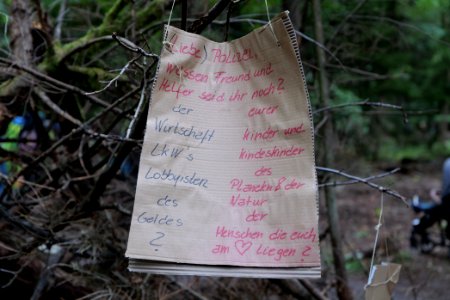 (Liebe) Polizei,
Wessen Freund und
Helfer seid ihr noch?
der eurer
Wirtschaft Kinder und
LKW's Kindeskinder
Lobbyisten des
des Planeten der
Geldes Natur
? der
Menschen die euch
am ♡ Liegen?